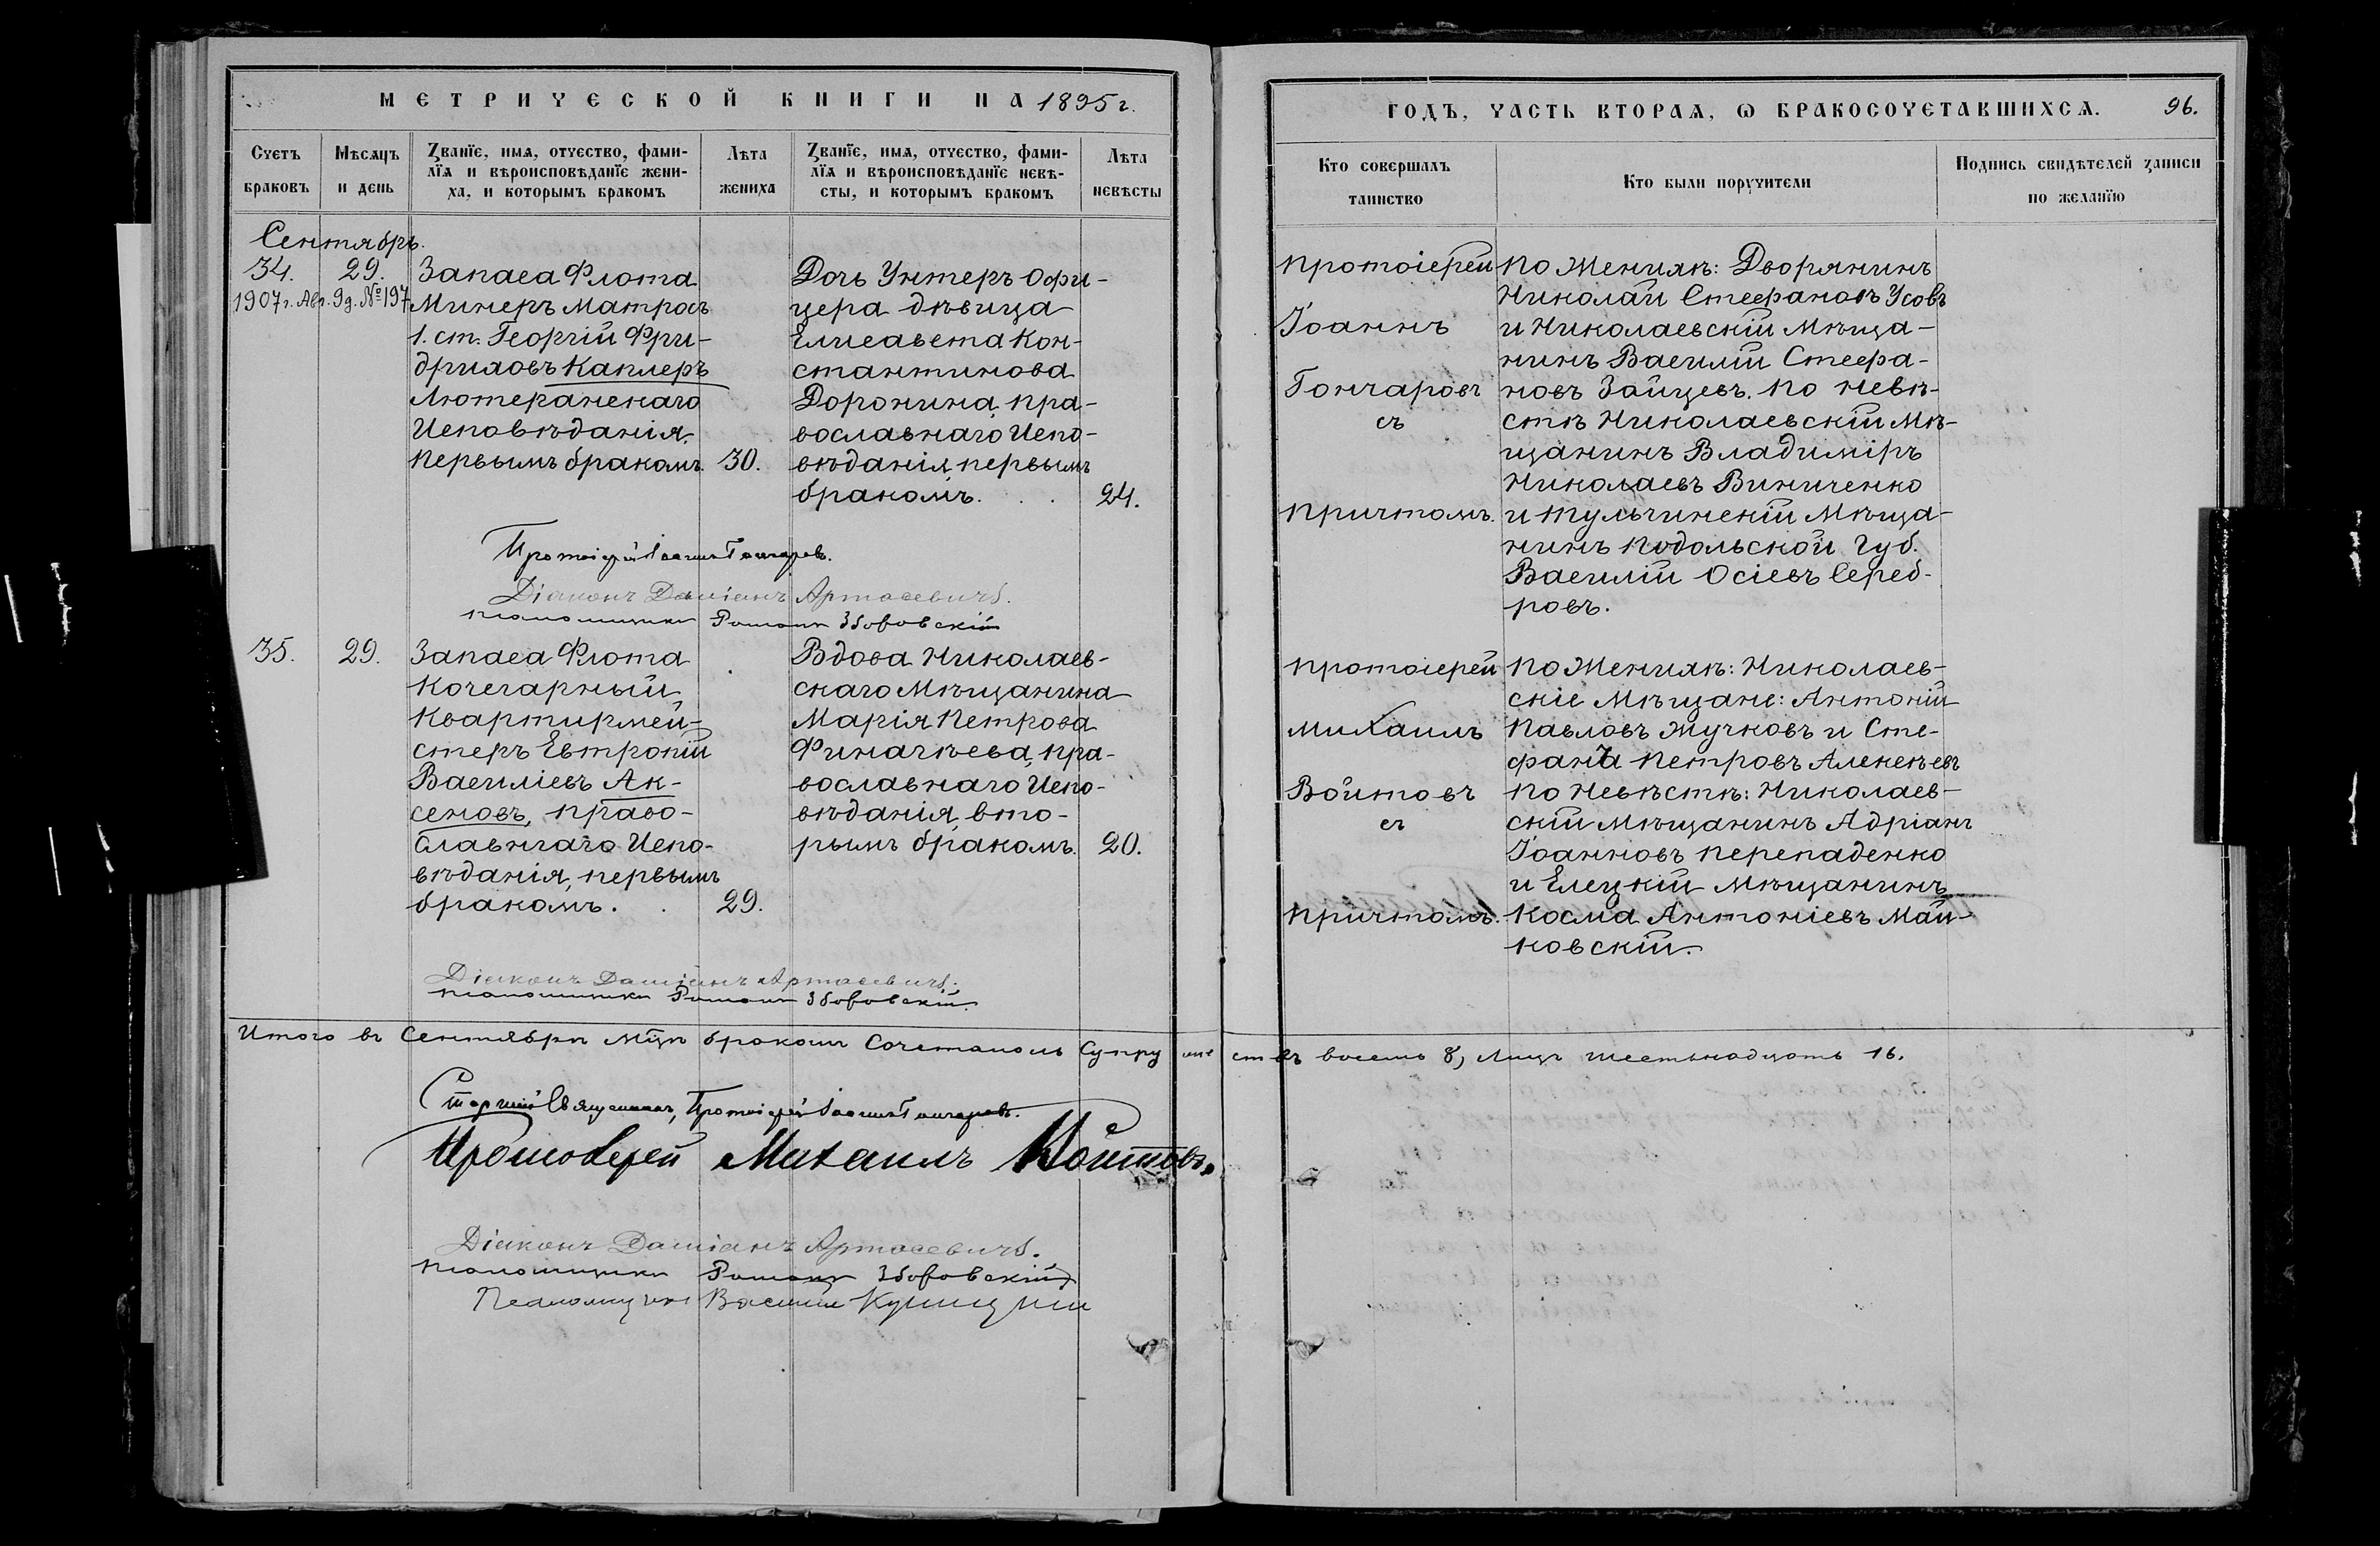 МЕТРИЧЕСКОЙ КНИГИ НА 1895 г.
Счетъ браковъ
Мѣсяцъ и день
Званїе, имя, отчество, фами-
лїя и вѣроисповѣданїе жени-
ха, и которымъ бракомъ
Лѣта жениха
Званїе, имя, отчество, фами-
лїя и вѣроисповѣданїе невѣ-
сты, и которымъ бракомъ
Лѣта невѣсты
Сентябрь.
34. 29.
1907 г. Авг. 9 д. № 197
Запаса Флота
Минеръ матросъ
1. ст. Георгій Фри-
дриховъ Каплеръ
Лютеранскаго
Исповѣданія,
первымъ бракомъ. 30.
Дочь Унтеръ Офи-
цера дѣвица
Елисавета Кон-
стантинова
Доронина, пра-
вославнаго Испо-
вѣданія, первымъ
бракомъ. 24.
Протоіерей Іоаннъ Гончаровъ.
Діаконъ Даміанъ Артасевичъ.
псаломщикъ Романъ Зборовскій
35. 29.
Запаса Флота
Кочегарный
Квартирмей-
стеръ Евтропій
Василіевъ Ак-
сеновъ, право-
славнаго Испо-
вѣданія, первымъ
бракомъ. 29.
Вдова Николаев-
скаго Мѣщанина
Марія Петрова
Финагѣева, пра-
вославнаго Испо-
вѣданія, вто-
рымъ бракомъ. 20.
Діаконъ Даміанъ Артасевичъ.
псаломщикъ Романъ Зборовскій.
Итого въ Сентябрѣ м̃цѣ бракомъ сочеталось супружествъ восемь 8, лицъ шестьнадцать 16.
Старшій Священникъ, Протоіерей Іоаннъ Гончаровъ.
Протоіерей Михаилъ Войтовъ.
Діаконъ Даміанъ Артасевичъ.
псаломщикъ Романъ Зборовскій
Псаломщикъ Василій
ГОДЪ, ЧАСТЬ ВТОРАЯ, Ѡ БРАКОСОЧЕТАВШИХСЯ. 96.
Кто совершалъ таинство
Кто были поручители
Подпись свидѣтелей записи по желанїю
Протоіерей
Іоаннъ
Гончаровъ
съ
причтомъ.
По Женихѣ: Дворянинъ
Николай Стефановъ Усовъ
и Николаевскій Мѣща-
нинъ Василій Стефа-
новъ Зайцевъ. По невѣ-
стѣ Николаевскій Мѣ-
щанинъ Владиміръ
Николаевъ Виниченко
и Тульчинскій Мѣща-
нинъ Подольской Губ.
Василій Осіевъ Сереб-
ровъ.
Протоіерей
Михаилъ
Войтовъ
съ
причтомъ.
По Женихѣ: Николаев-
скіе Мѣщане: Антоній
Павловъ Жучковъ и Сте-
фанъ Петровъ Алексѣевъ
По Невѣстѣ: Николаев-
скій Мѣщанинъ Адріанъ
Іоанновъ Перепаденко
и Елецкій Мѣщанинъ
Косма Антоніевъ Май-
ковскій.